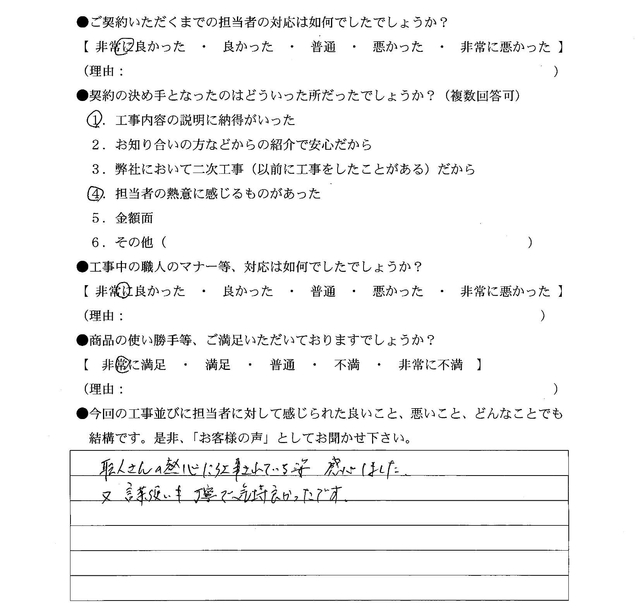 ●ご契約いただくまでの担当者の対応は如何でしたでしょうか？
【 非常に良かった ・ 良かった ・ 普通 ・ 悪かった ・ 非常に悪かった 】
（理由： ）
●契約の決め手となったのはどういった所だったでしょうか？（複数回答可）
１．工事内容の説明に納得がいった
２．お知り合いの方などからの紹介で安心だから
３．弊社において二次工事（以前に工事をしたことがある）だから
４．担当者の熱意に感じるものがあった
５．金額面
６．その他（ ）
●工事中の職人のマナー等、対応は如何でしたでしょうか？
【 非常に良かった ・ 良かった ・ 普通 ・ 悪かった ・ 非常に悪かった 】
（理由： ）
●商品の使い勝手等、ご満足いただいておりますでしょうか？
【 非常に満足 ・ 満足 ・ 普通 ・ 不満 ・ 非常に不満 】
（理由： ）
●今回の工事並びに担当者に対して感じられた良いこと、悪いこと、どんなことでも
結構です。是非、「お客様の声」としてお聞かせ下さい。
職人さんの熱心に仕事されている姿 感心しました
又 言葉使いも 丁寧で気持良かったです。